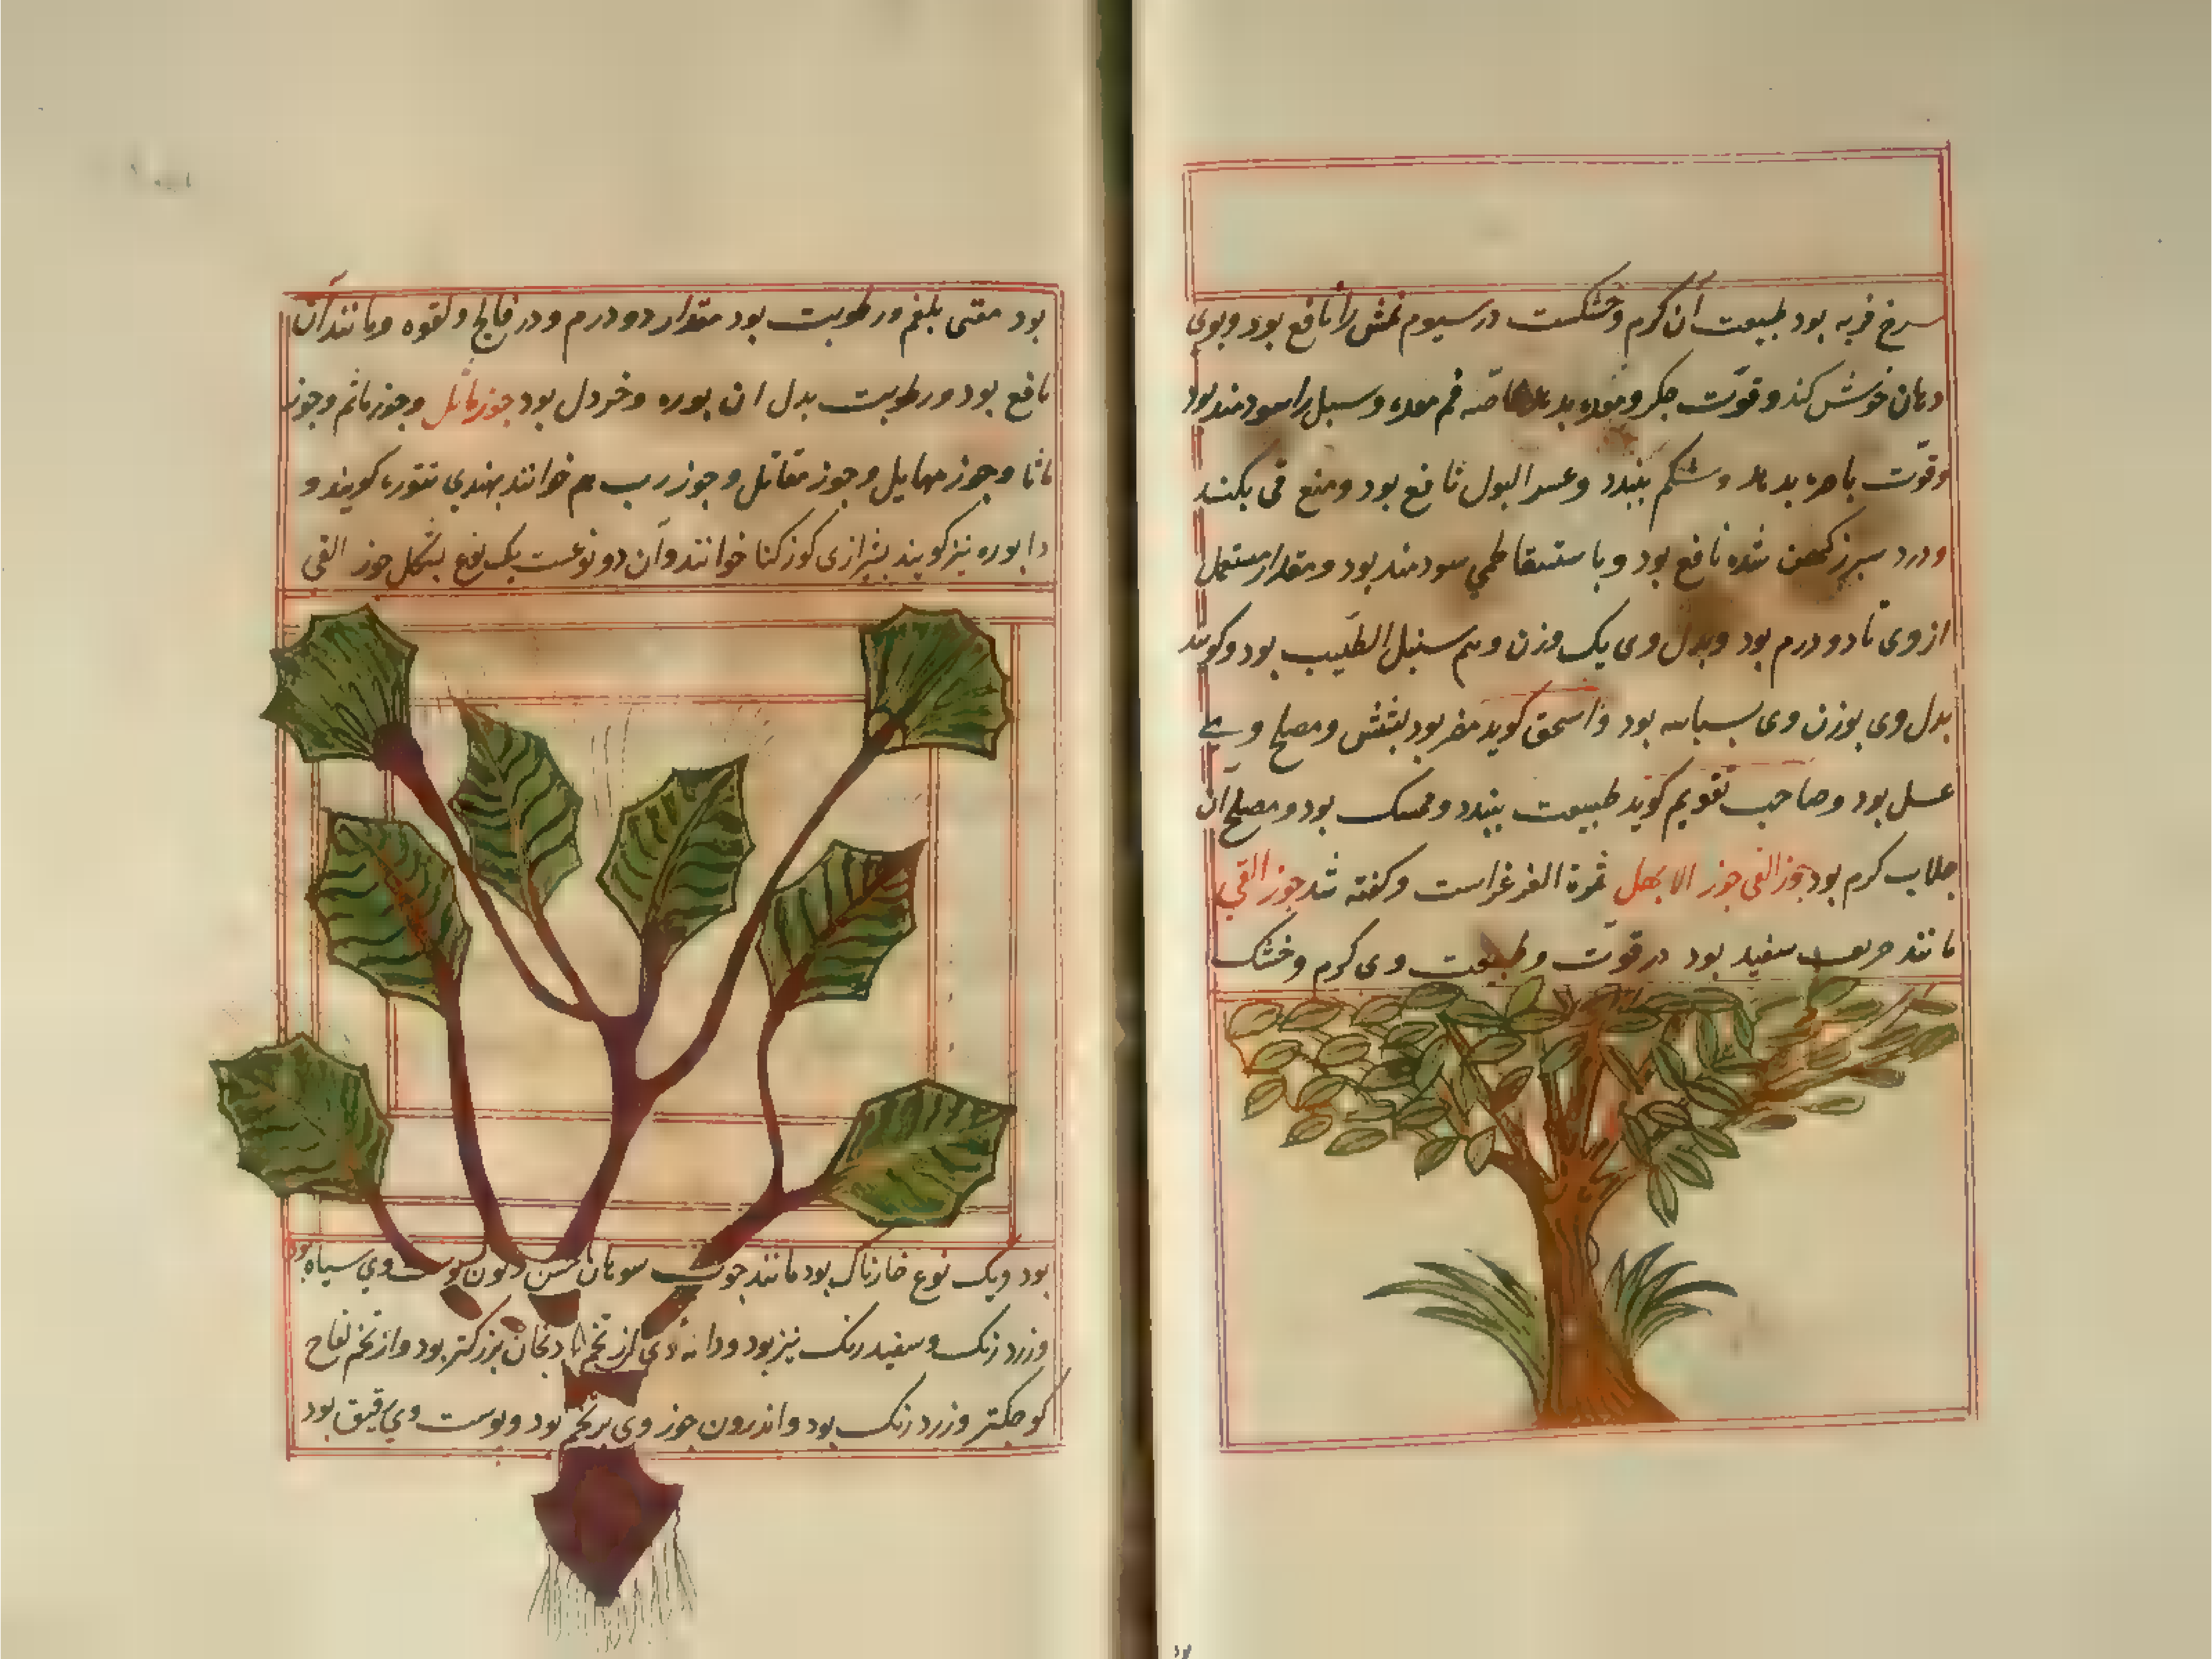 سرخ فربه بود طبیعت آن گرم و خشکست در سیوم نمش را نافع بود و بوی
دهان خوش کند و قوّت جکر و معده بدهد خاصّه فم معده و سبل را سودمند بود
و قوّت باصره بدهد و شکم ببندد و عسر البول نافع بود و منع قی بکند
و درد سپرز کهن شده نافع بود و با ستسقا طمی سودمند بود و مقدار مستعمل
از وی تا دو درم بود و بدل وی یک وزن و هم سنبل الطّیب بود و کویند
بدل وی بوزن وی بسباسه بود و اسحق کوید مضر بود بشش و مصلح وی
عسل بود و صاحب تقویم کوید طبیعت ببندد و ممسک بود و مصلح آن
جلاب کرم بود جوز القی جوز الابهل ثمرة العرعر است و کفته شد جوز القی
مانند خربق سفید بود در قوّت و طبیعت وی کرم و خشک
بود
بود مقی بلغم و رطوبت بود مقدار دو درم و در فالج و لقوه و مانند آن
نافع بود و رطوبت بدل ان بوره و خردل بود جوز ماثل و جوز ماثم و جوز
ماثا و جوز مهایل و جوز مقاتل و جوز رب هم خوانند بهندی تتوره کویند و
دابوره نیز کویند بشیرازی کوز کنا خوانند و آن دو نوعست یک نوع بشکل جوز القی
بود و یک نوع خارناک بود مانند جوز سوهان خشن و لون پوست وی سیاه بود
و زرد رنک و سفید رنک نیز بود و دانه وی از تخم بادنجان بزرکتر بود و از تخم لفاح
کوجکتر و زرد رنک بود و اندرون جوز وی پر تخم بود و پوست وی رقیق بود